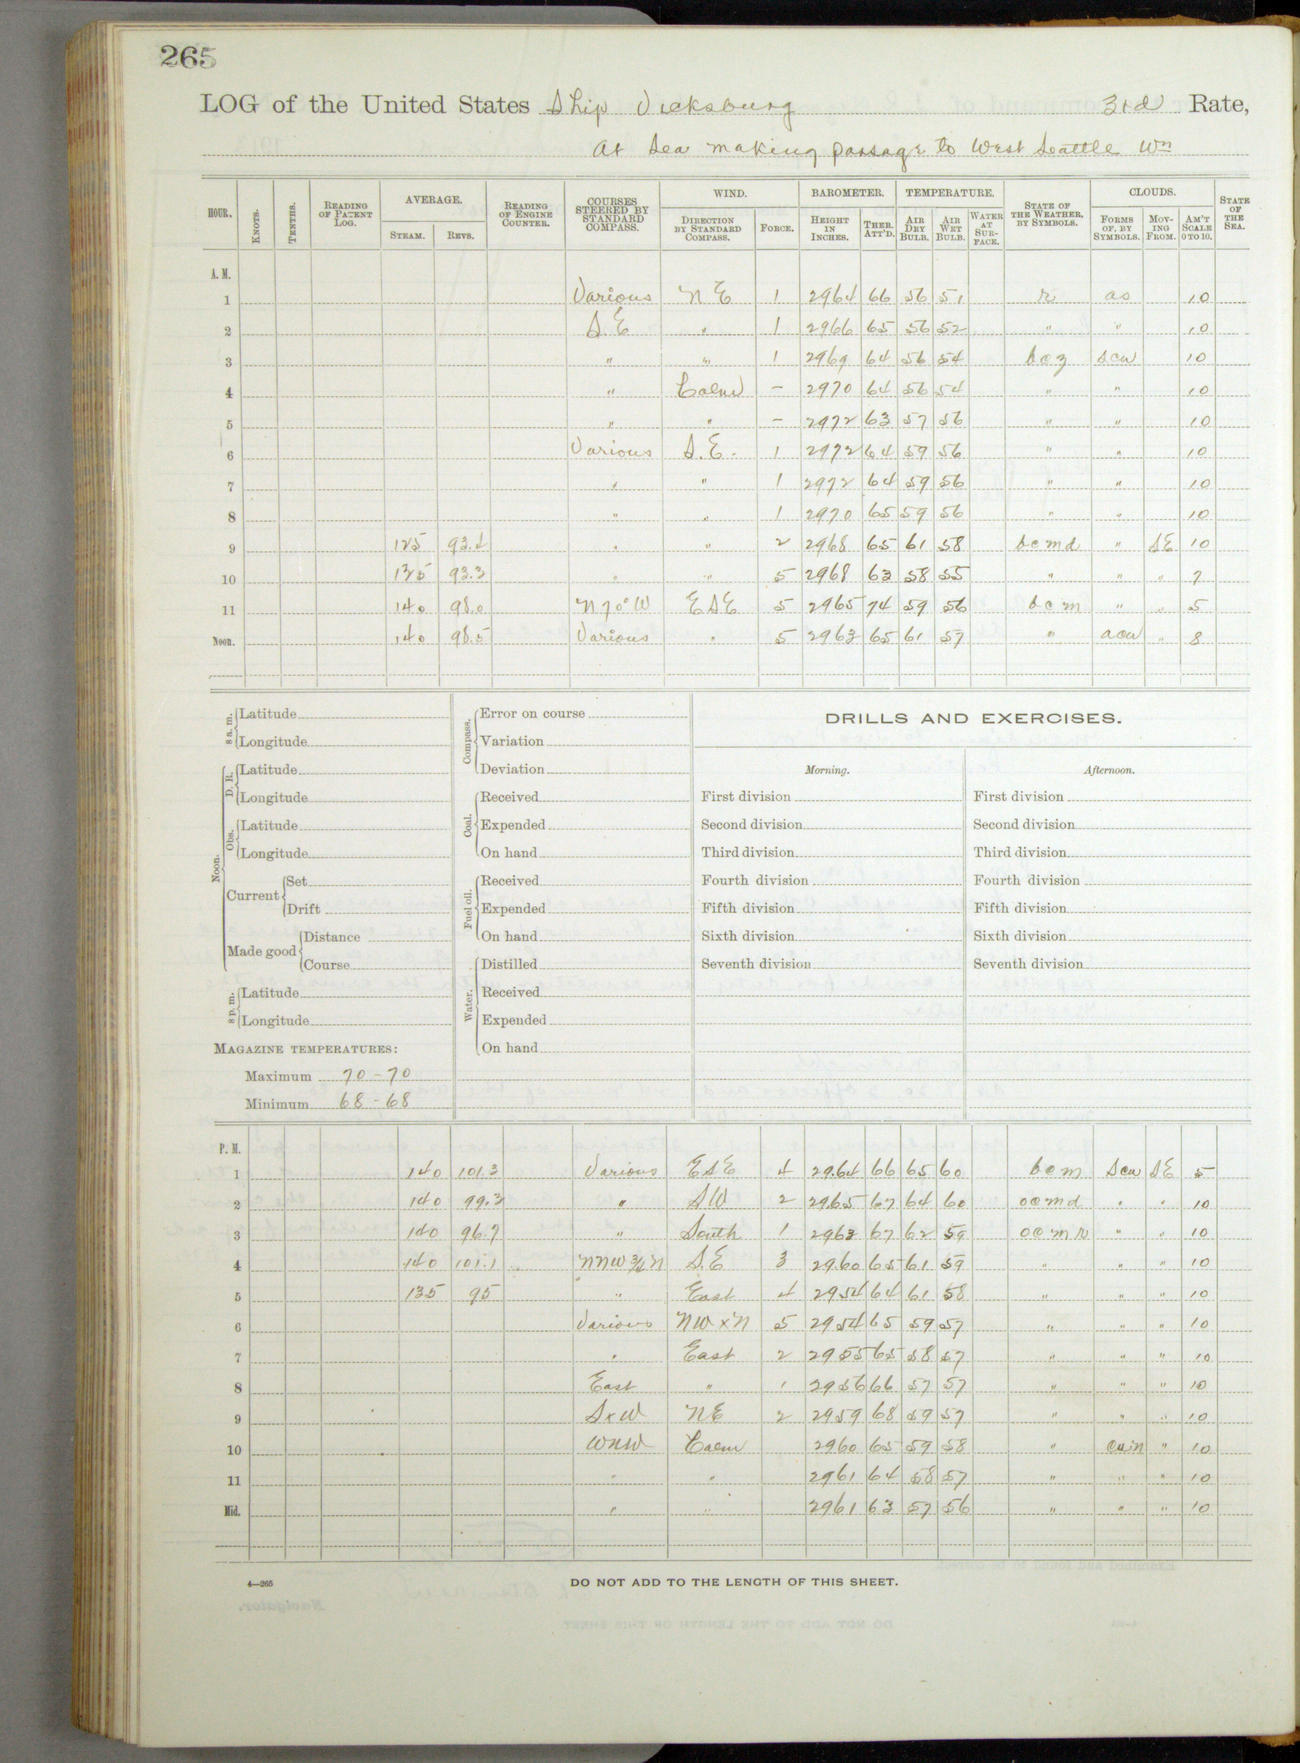 265
LOG of the United States Ship Vicksburg 3rd Rate,
At Sea making passage to West Seattle Wn
HOUR. KNOTS. TENTHS. READING OF PATENT LOG. AVERAGE. STEAM. REVS. READING OF ENGINE COUNTER. COURSES STEERED BY STANDARD COMPASS. WIND. DIRECTION BY STANDARD COMPASS. FORCE. BAROMETER. HEIGHT IN INCHES. THER. ATT'D. TEMPERATURE. AIR DRY BULB. AIR WET BULB. WATER AT SURFACE. STATE OF THE WEATHER, BY SYMBOLS. CLOUDS. FORMS OF, BY SYMBOLS. MOVING FROM. AM'T SCALE 0 TO 10. STATE OF THE SEA.
A. M.
1 Various NE 1 2964 66 56 51 r as 10
2 S.E " 1 2966 65 56 52 " " 10
3 " " 1 2969 64 56 54 bcz scu 10
4 " Calm - 2970 64 56 54 " " 10
5 " " - 2972 63 57 56 " " 10
6 Various S.E. 1 2972 64 59 56 " " 10
7 " " 1 2972 64 59 56 " " 10
8 " " 1 2970 65 59 56 " " 10
9 125 93.4 " " 2 2968 65 61 58 bcmd " SE 10
10 135 93.3 " " 5 2968 63 58 55 " " " 7
11 140 98.0 N70°W ESE 5 2965 74 59 56 bcm " " 5
Noon. 140 98.5 Various " 5 2963 65 61 57 " acu " 8
8 a. m. Latitude
Longitude
Noon. D. R. Latitude
Longitude
Obs. Latitude
Longitude
Current Set
Drift
Made good Distance
Course
8 p. m. Latitude
Longitude
MAGAZINE TEMPERATURES:
Maximum 70-70
Minimum 68-68
Compass. Error on course
Variation
Deviation
Coal. Received
Expended
On hand
Fuel oil. Received
Expended
On hand
Water. Distilled
Received
Expended
On hand
DRILLS AND EXERCISES.
Morning. Afternoon.
First division First division
Second division Second division
Third division Third division
Fourth division Fourth division
Fifth division Fifth division
Sixth division Sixth division
Seventh division Seventh division
P. M.
1 140 101.3 Various ESE 4 29.64 66 65 60 bcm Scu SE 5
2 140 99.3 " SW 2 29.65 67 64 60 ocmd " " 10
3 140 96.7 " South 1 2963 67 62 59 ocmr " " 10
4 140 101.1 NNW 3/4 N S.E 3 29.60 65 61 59 " " " 10
5 135 95 " East 4 2954 64 61 58 " " " 10
6 Various NW x N 5 2954 65 59 57 " " " 10
7 " East 2 2955 65 58 57 " " " 10
8 East " 1 2956 66 57 57 " " " 10
9 SxW NE 2 2959 68 59 57 " " " 10
10 WNW Calm 2960 65 59 58 " cu.n " 10
11 " " 2961 64 58 57 " " " 10
Mid. " " 2961 63 57 56 " " " 10
4—265
DO NOT ADD TO THE LENGTH OF THIS SHEET.